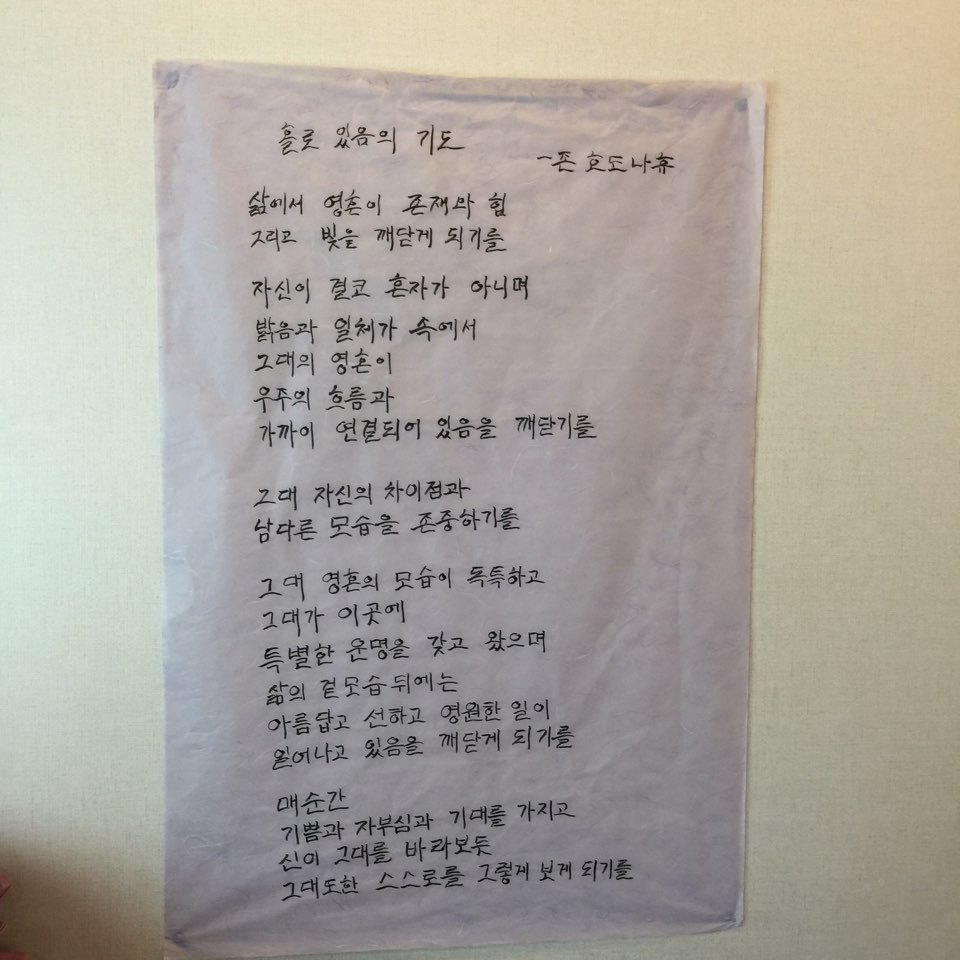 홀로 있음의 기도
-존 호도나휴
삶에서 영혼이 존재와 힘
그리고 빛을 깨닫게 되기를
자신이 결코 혼자가 아니며
밝음과 일체가 속에서
그대의 영혼이
우주의 흐름과
가까이 연결되어 있음을 깨닫기를
그대 자신의 차이점과
남다른 모습을 존중하기를
그대 영혼의 모습이 독특하고
그대가 이곳에
특별한 운명을 갖고 왔으며
삶의 겉모습뒤에는
아름답고 선하고 영원한 일이
일어나고 있음을 깨닫게 되기를
매순간
기쁨과 자부심과 기대를 가지고
신이 그대를 바라보듯
그대또한 스스로를 그렇게 보게 되기를